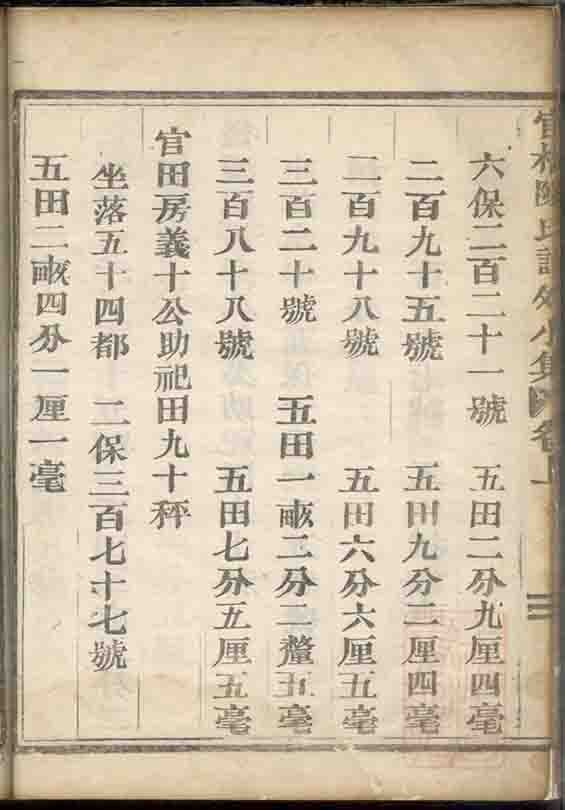 六保二百二十一號 五田二分九厘四毫
二百九十五號 五田九分二厘四毫
二百九十八號 五田六分六厘五毫
三百二十號 五田一畝二分二釐五毫
三百八十八號 五田七分五厘五毫
官田房義十公助祀田九十秤
坐落五十四都 二保三百七十七號
五田二畝四分一厘一毫